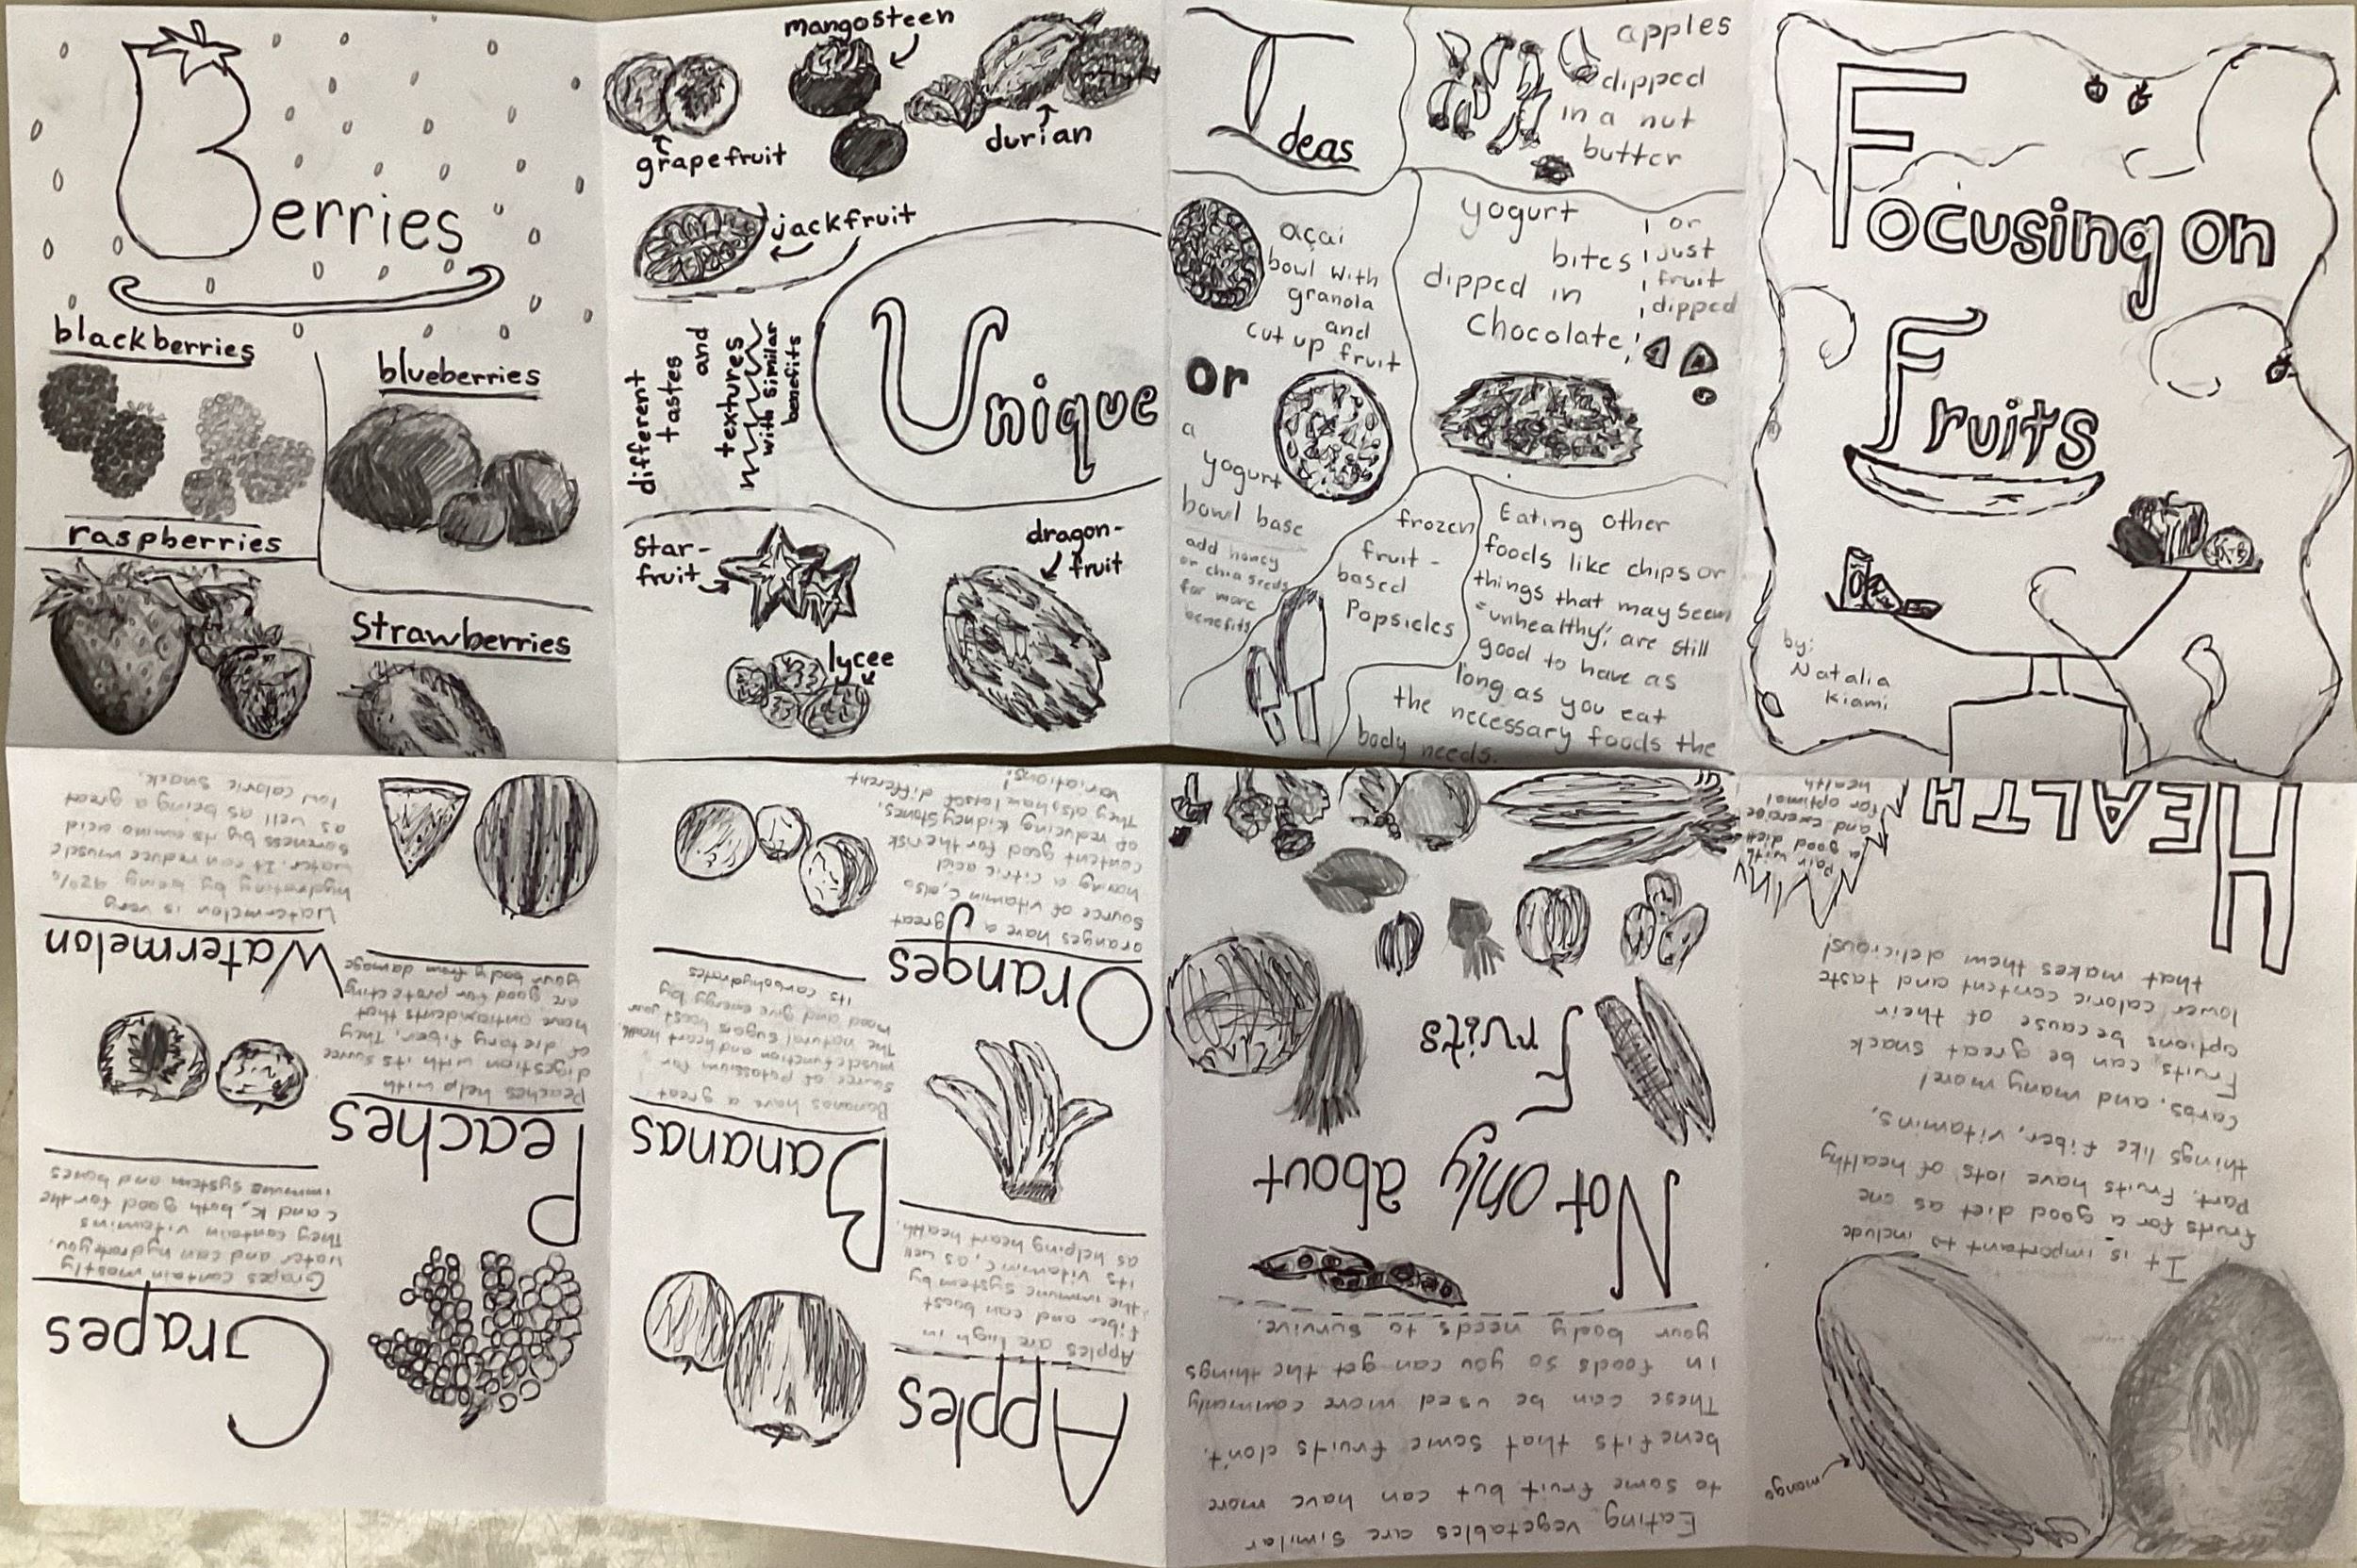 Focusing on
Fruits
by:
Natalia
Kiami
HEALTH
Pair with
a good diet
and exercise
for optimal
health
It is important to include
fruits for a good diet as one
part. Fruits have lots of healthy
things like fiber, vitamins,
carbs, and many more!
Fruits can be great snack
options because of their
lower caloric content and taste
that makes them delicious!
mango
Apples
Apples are high in
fiber and can boost
the immune system by
its vitamin C, as well
as helping heart health.
Bananas
Bananas have a great
source of potassium for
muscle function and heart health.
The natural sugars boost your
mood and give energy by
its carbohydrates
Oranges
oranges have a great
source of vitamin C, also
having a citric acid
content good for the risk
of reducing kidney stones.
They also have lots of different
variations!
Grapes
Grapes contain mostly
water and can hydrate you.
They contain vitamins
C and K, both good for the
immune system and bones
Peaches
Peaches help with
digestion with its source
of dietary fiber. They
have antioxidents that
are good for protecting
your body from damage
Watermelon
Watermelon is very
hydrating by being 92%
water. It can reduce muscle
soreness by its amino acid
as well as being a great
low caloric snack.
Berries
blackberries
blueberries
raspberries
Strawberries
mangosteen
grapefruit
durian
jackfruit
Unique
different
tastes
and
textures
with similar
benefits
star-
fruit
dragon-
fruit
lycee
Not only about
Fruits
Eating vegetables are similar
to some fruit but can have more
benefits that some fruits don't.
These can be used more commonly
in foods so you can get the things
your body needs to survive.
Ideas
apples
dipped
in a nut
butter
açai
bowl with
granola
and
cut up fruit
or
a
yogurt
bowl base
add honey
or chia seeds
for more
benefits
yogurt
bites
dipped in
chocolate!
or
just
fruit
dipped
frozen
fruit-
based
Popsicles
Eating other
foods like chips or
things that may seem
"unhealthy", are still
good to have as
long as you eat
the necessary foods the
body needs.